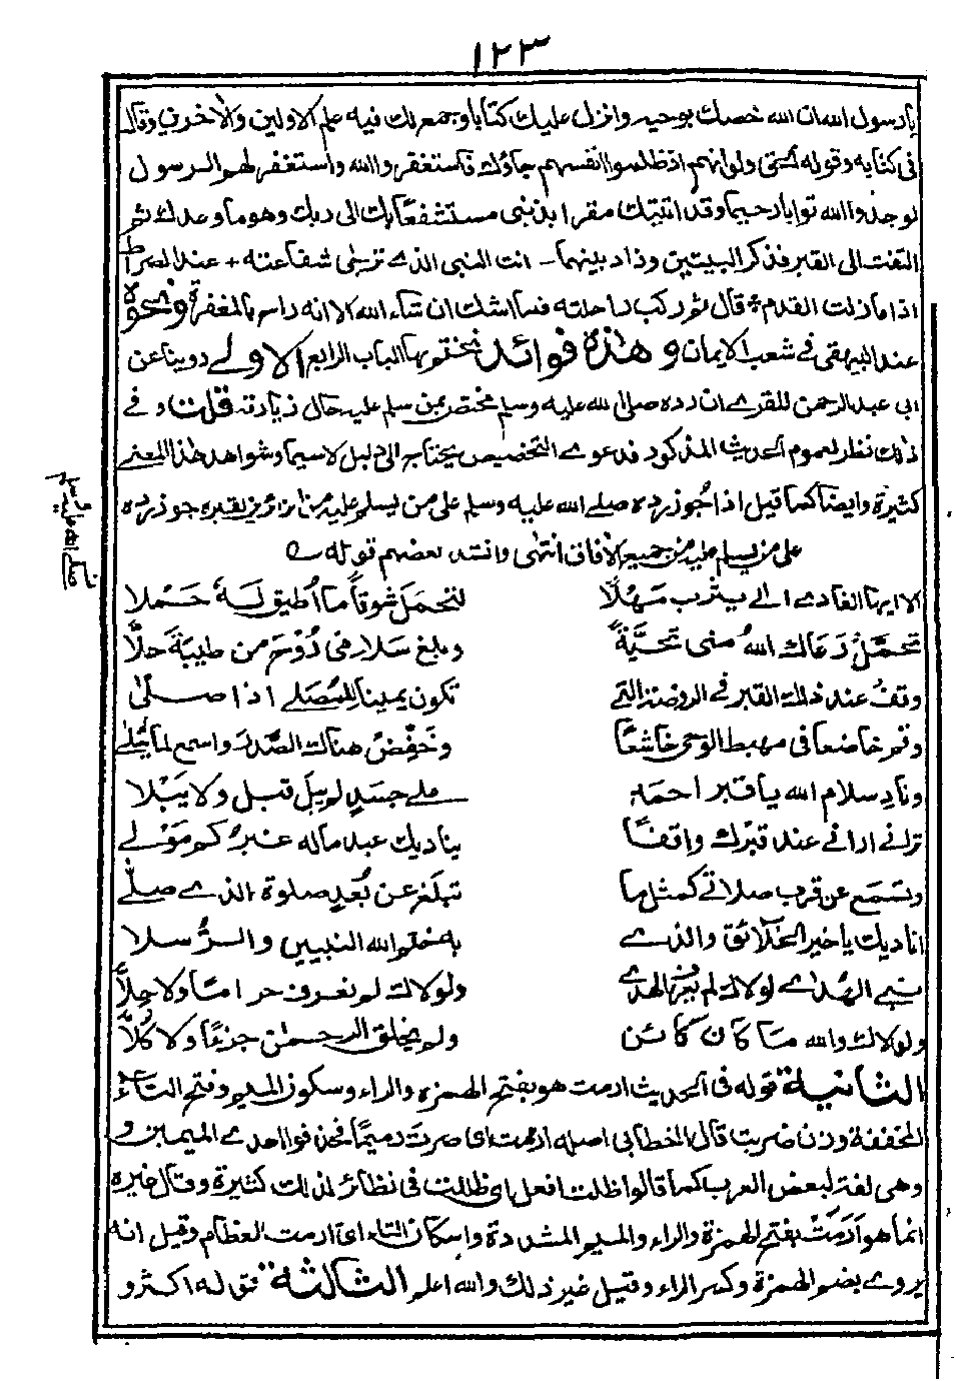 ١٢٣
يا رسول الله ان الله خصك بوحيه وانزل عليك كتابا وجمع لك فيه علم الاولين والاخرين وقال
فى كتابه وقوله الحق ولو انهم اذ ظلموا انفسهم جاؤك فاستغفروا الله واستغفر لهم الرسول
لوجدوا الله توابا رحيما وقد اتيتك مقرا بذنبى مستشفعا بك الى ربك وهو ما وعدك ثم
التفت الى القبر فذكر البيتين وزاد بينهما - انت النبى الذے ترجى شفاعته + عند الصراط
اذا ما زلت القدم * قال ثم ركب راحلته فما اشك ان شاء الله الا انه راح بالمغفرة ونحوه
عند البيهقى فى شعب الايمان وهذه فوائد نختم بها الباب الرابع الاولے روينا عن
ابى عبد الرحمن المقرے ان رده صلى الله عليه وسلم مختص بمن سلم عليه حال زيارته قلت وفے
ذلك نظر لعموم الحديث المذكور فدعوے التخصيص يحتاج الى دليل لاسيما وشواهد هذا المعنے
كثيرة وايضا كما قيل اذا جُوز رده صلے الله عليه وسلم على من يسلم عليه من زائرين لقبره جوز رده
على من يسلم عليه من جميع الافاق انتهى وانشد بعضهم قوله ے
صلے الله عليه وسلم
الا ايها الغادے الے يثرب مَهْلًا لتحمَل شوقاً ما اُطيق لَهٗ حَملا
تحمَّل رَعاك اللهُ منى تحيَّةً وبلغ سَلامى رُوْحَ من طيبَةَ حلَّا
وقفْ عند ذلك القبر فے الروضة التے تكون يمينا للمُصَلے اذا صلّىٰ
وقم خاضعا فى مهبط الوحى خاشعًا وخَفِّضْ هناك الصَّدرَ واسمع لما يُتلےٰ
ونادِ سلام الله يا قبر احمد علے جسدٍ لم يبلَ قبل ولا يَبْلا
ترانے ارانے عند قبْرك واقفًا يناديك عبد ماله غيرُكم مَوْلے
وتسمَع عن قرب صلاتے كمثل ما تبلَّغ عن بُعدٍ صلوة الذے صلّے
اناديك يا خير الخلائق والذے به ختم الله النبيين والرُّسلا
نبے الهُداے لولاك لم يعرف الهدے ولولاك لم نعرف حراما ولا حِلَّا
ولولاك والله ما كان كائن ولم يخلق الرحمٰن جزءًا ولا كُلَّا
الثانية قوله فى الحديث ارمت هو بفتح الهمزه والراء وسكون الميم وفتح التاء
المخففة وزن ضربت قال الخطابى اصله ارممت اى صرت رميما فحذفوا احدے الميمين و
وهى لغة لبعض العرب كما قالوا ظلت افعل اى ظللت فى نظائر لذلك كثيرة وقال غيره
انما هو اَرَمَّتْ بفتح الهمزة والراء والميم المشددة واسكان التاء اى ارمت العظام وقيل انه
يروے بضم الهمزة وكسر الراء وقيل غير ذلك والله اعلم الثالثة قوله اكثرو